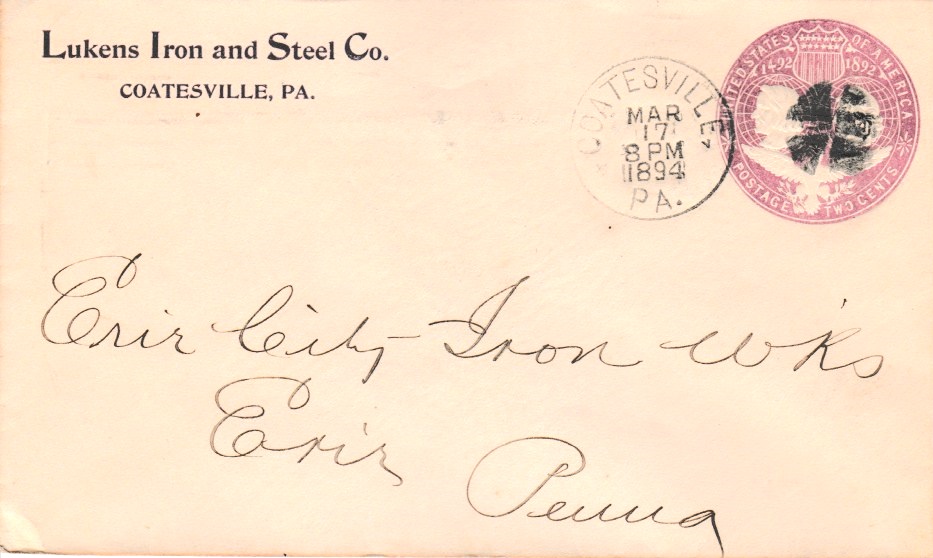 Lukens Iron and Steel Co.
COATESVILLE, PA.
COATESVILLE,
MAR
17
8 PM
1894
PA.
UNITED STATES OF AMERICA
1492 1892
POSTAGE TWO CENTS
Erie City Iron Wks
Erie
Penna